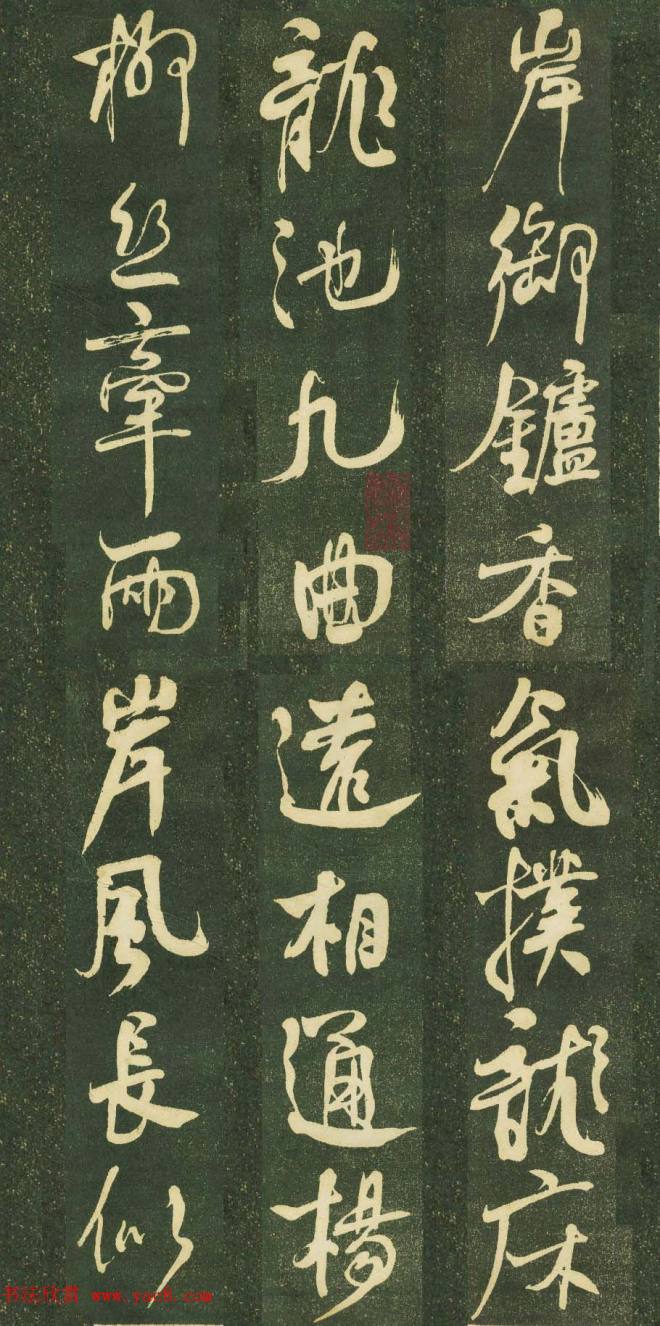 岸御鑪香氣撲龍床
龍池九曲遠相通楊
柳絲牽兩岸風長似
书法欣赏 www.yac8.com